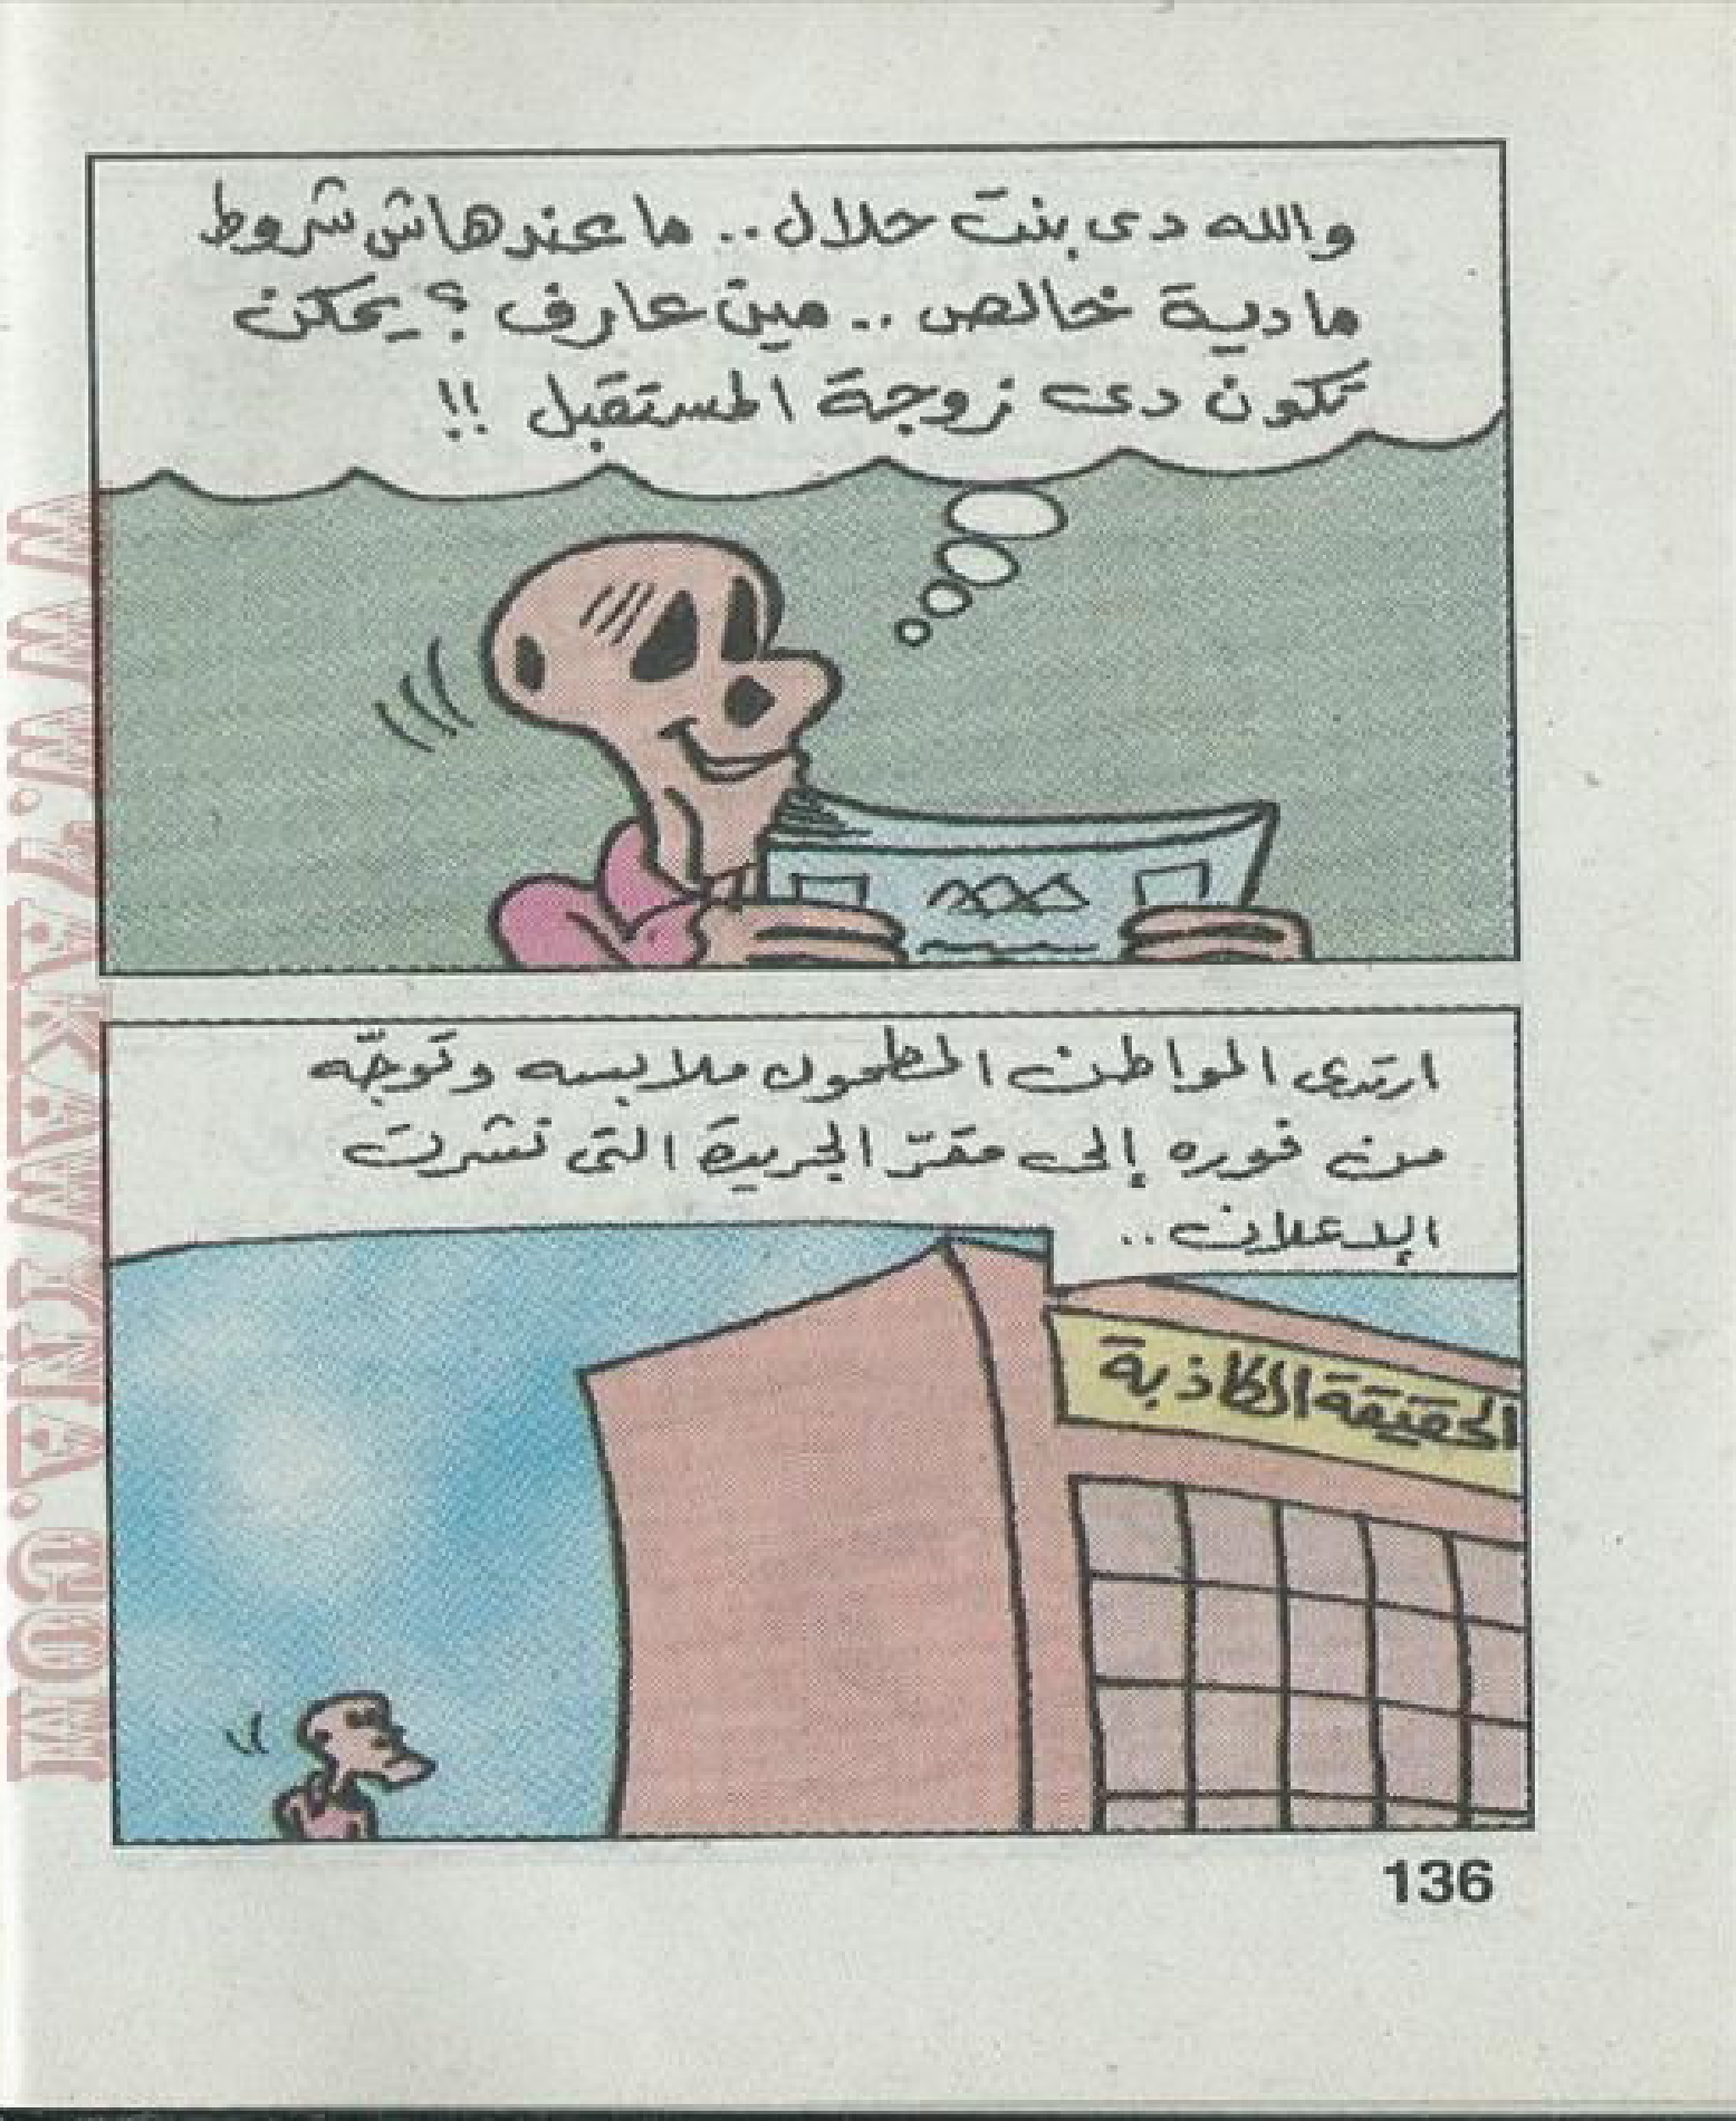 والله دى بنت حلال.. ما عندهاش شروط
مادية خالص .. مين عارف ؟ يمكن
تكون دى زوجة المستقبل !!
ارتدى المواطن المطحون ملابسه وتوجّه
من فوره إلى مقرّ الجريدة التى نشرت
الإعلان..
الحقيقة الكاذبة
136